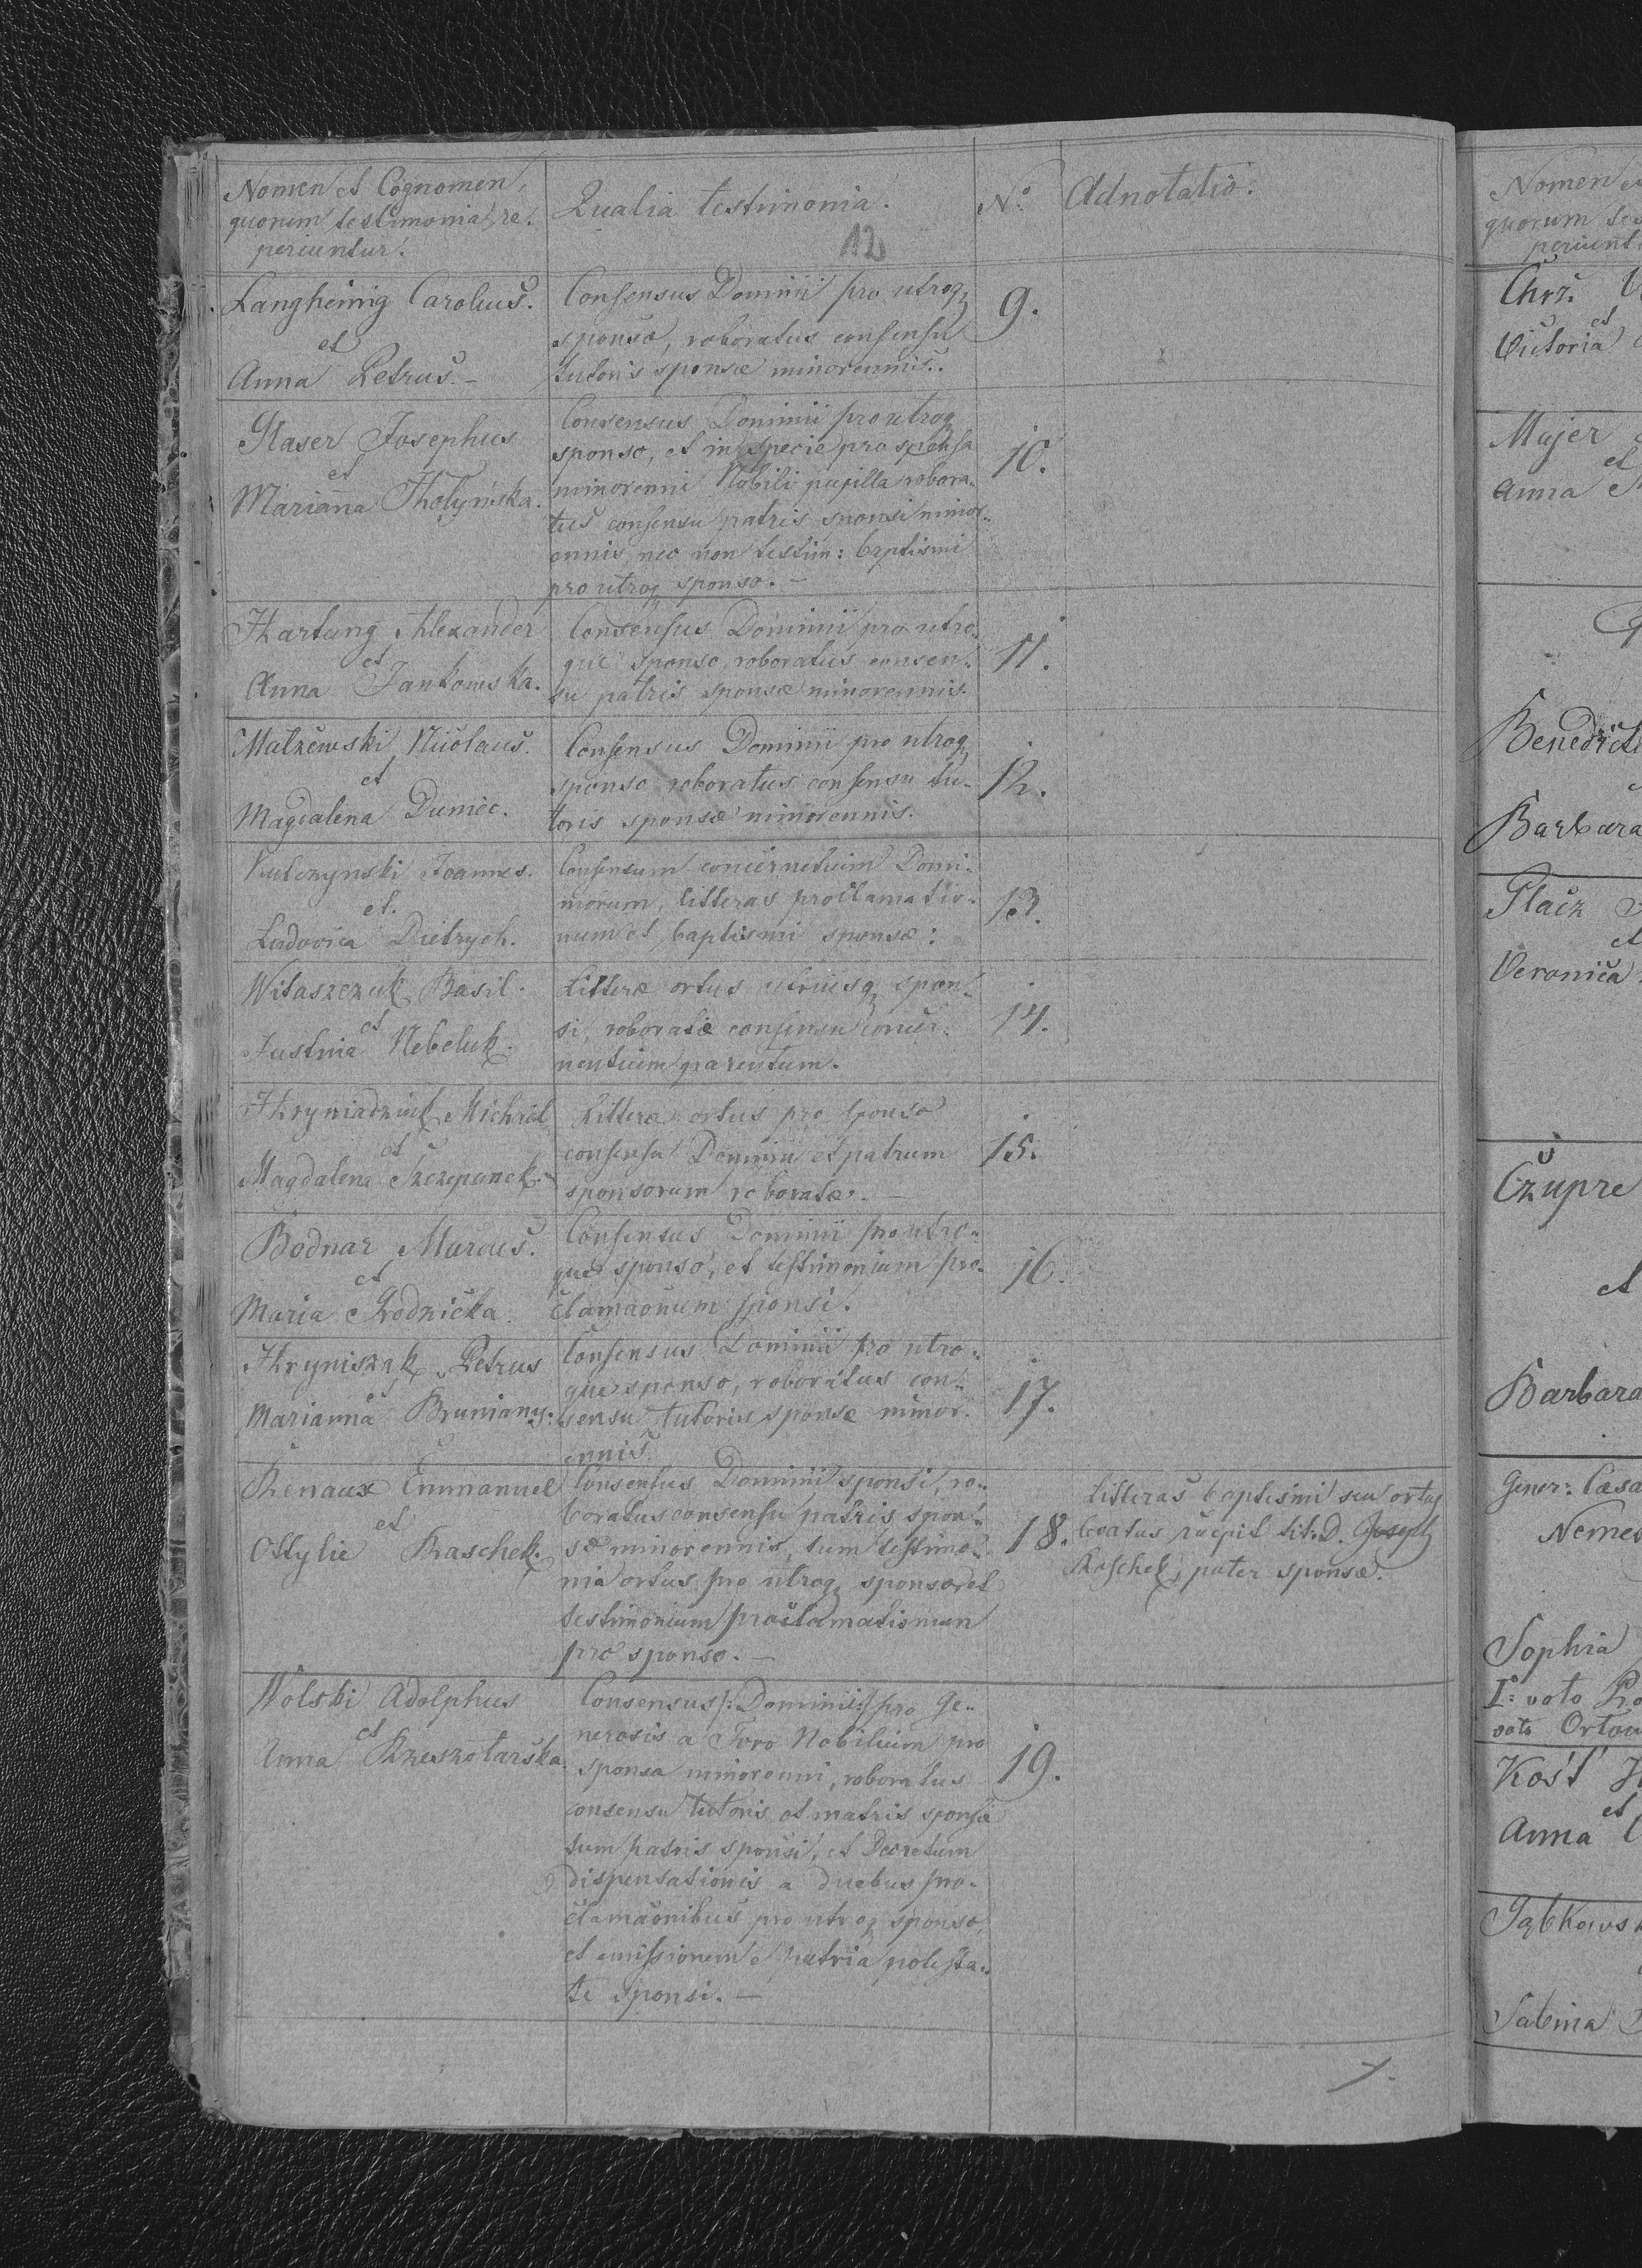 Nomen et Cognomen,
quorum testimonia re-
periuntur.
Qualia testimonia.
No
Adnotatio.
12
Langheinig Carolus.
et
Anna Petrus. -
Consensus Dominii pro utroq
sponso, roboratus consensu
tutoris sponsæ minorennis.
9.
Glaser Josephus
et
Marianna Hołyńska.
Consensus Dominii pro utroq
sponso, et in specie pro sponsa
minorenni Nobili pupilla robora-
tus consensu patris sponsi minor-
ennis nec non testim: baptismi
pro utroq sponso. -
10.
Hartung Alexander
et
Anna Jankowska.
Consensus Dominii pro utro-
que sponso, roboratus consen-
su patris sponsæ minorennis.
11.
Malzewski Nicolaus.
et
Magdalena Dumiec.
Consensus Dominii pro utroq
sponso roboratus consensu tu-
toris sponsæ minorennis.
12.
Kulczynski Joannes.
et.
Ludovica Dietrych.
Consensum concernetium Domi-
niorum, litteras proclamatio-
num et baptismi sponsæ:
13.
Witaszczuk Basil.
et
Justina Nebeluk.
Litteræ ortus utriusq spon-
si, roboratæ consensu concer-
nentium parentum.
14.
Hryniadziuk Michael
et
Magdalena Szczepanek.
Litteræ ortus pro sponso
consensu Dominii et patrum
sponsorum roboratæ. -
15.
Bodnar Marcus.
et
Maria Rodnicka.
Consensus Dominii pro utro-
que sponso, et testimonium pro-
clamaonum sponsi.
16.
Hryniszak Petrus
et
Marianna Bruniany.
Consensus Dominii pro utro-
que sponso, roboratus con-
sensu tutoris sponsæ minor-
ennis
17.
Renaux Emmanuel
et
Ottylie Raschek.
Consensus Dominii sponsi, ro-
boratus consensu patris spon-
sæ minorennis, tum testimo-
nia ortus pro utroq sponso et
testimonium proclamationum
pro sponso. -
18.
Litteras baptismi seu ortus
levatus recepit tit: D. Joseph
Raschek, pater sponsæ.
Wolski Adolphus
et
Anna Rzeszotarska.
Consensus /: Dominii :/ pro Ge-
nerosis a Foro Nobilium pro
sponsa minorenni, roboratus
consensu tutoris et matris sponsæ
tum patris sponsi, et Decretum
dispensationis a duobus pro-
clamaonibus pro utroq sponso,
et emissionem e patria potesta-
te sponsi. -
19.
Nomen e
quorum tes
periunt
Chrz.
et
Victoria
Majer
et
Anna
Benedict
Barbara
Placz
et
Veronica
Czupre
et
Barbara
Gener: Cæsa
Nemec
Sophia
I: voto Ro
voto Orlow
Kość
et
Anna
Ząbkowsk
Sabina